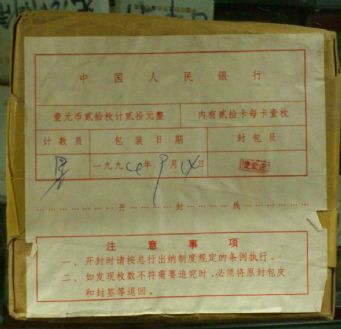 中国人民银行
壹元币贰拾枚计贰拾元整 内有贰拾卡每卡壹枚
计数员 包装日期 封包员
一九九 年 月 日
开 封 线
注意事项
一、开封时请按总行出纳制度规定的条例执行。
二、如发现枚数不符需要追究时,必须将原封包皮
和封签等退回。